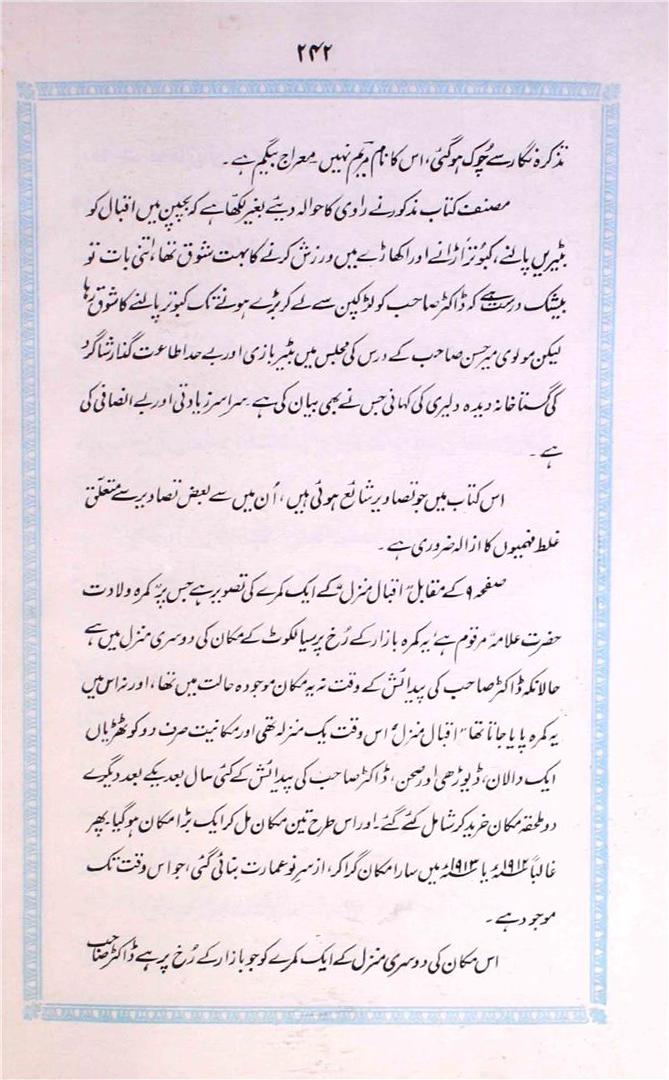 ۲۴۲
تذکرہ نگار سے چُوک ہو گئی، اس کا نام مریم نہیں معراج بیگم ہے۔
مصنف کتاب مذکور نے راوی کا حوالہ دیئے بغیر لکھا ہے کہ بچپن میں اقبال کو
بٹیریں پالنے، کبوتر اڑانے اور اکھاڑے میں ورزش کرنے کا بہت شوق تھا، اتنی بات تو
بیشک درست ہے کہ ڈاکٹر صاحب کو لڑکپن سے لے کر بڑے ہونے تک کبوتر پالنے کا شوق رہا
لیکن مولوی میر حسن صاحب کے درس کی مجلس میں بٹیر بازی اور بے حد اطاعت گذار شاگرد
کی گستاخانہ دیدہ دلیری کی کہانی جس نے بھی بیان کی ہے سراسر زیادتی اور بے انصافی کی
ہے۔
اس کتاب میں جو تصاویر شائع ہوئی ہیں، اُن میں سے بعض تصاویر سے متعلق
غلط فہمیوں کا ازالہ ضروری ہے۔
صفحہ ۹ کے مقابل "اقبال منزل" کے ایک کمرے کی تصویر ہے جس پر "کمرہ ولادت
حضرت علامہ" مرقوم ہے، یہ کمرہ بازار کے رُخ پر سیالکوٹ کے مکان کی دوسری منزل میں ہے
حالانکہ ڈاکٹر صاحب کی پیدائش کے وقت نہ یہ مکان موجودہ حالت میں تھا، اور نہ اس میں
یہ کمرہ پایا جاتا تھا "اقبال منزل" اس وقت یک منزلہ تھی اور مکانیت صرف دو کوٹھڑیاں
ایک دالان، ڈیوڑھی اور صحن، ڈاکٹر صاحب کی پیدائش کے کئی سال بعد یکے بعد دیگرے
دو ملحقہ مکان خرید کر شامل کئے گئے۔ اور اس طرح تین مکان مل کر ایک بڑا مکان ہو گیا۔ پھر
غالباً ۱۹۱۲ء یا ۱۹۱۳ء میں سارا مکان گرا کر، از سرِ نو عمارت بنائی گئی، جو اس وقت تک
موجود ہے۔
اس مکان کی دوسری منزل کے ایک کمرے کو جو بازار کے رُخ پر ہے ڈاکٹر صاحب